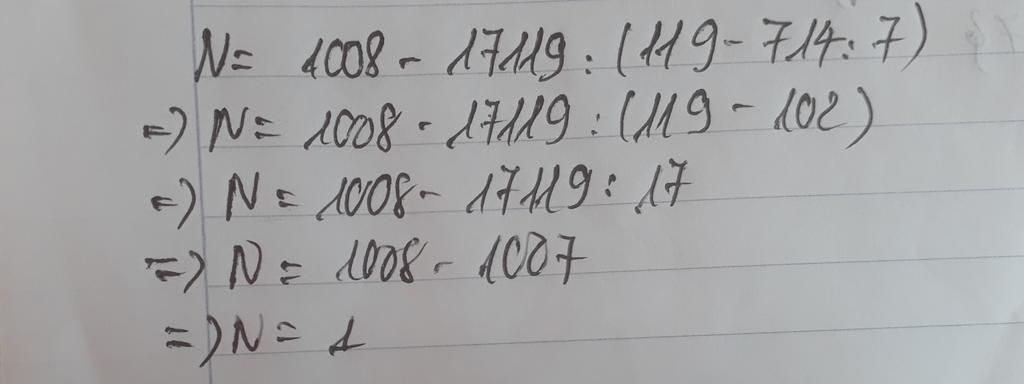 N= 1008 - 17119 : (119 - 714 : 7)
=) N= 1008 - 17119 : (119 - 102)
=) N = 1008 - 17119 : 17
=) N = 1008 - 1007
=) N = 1